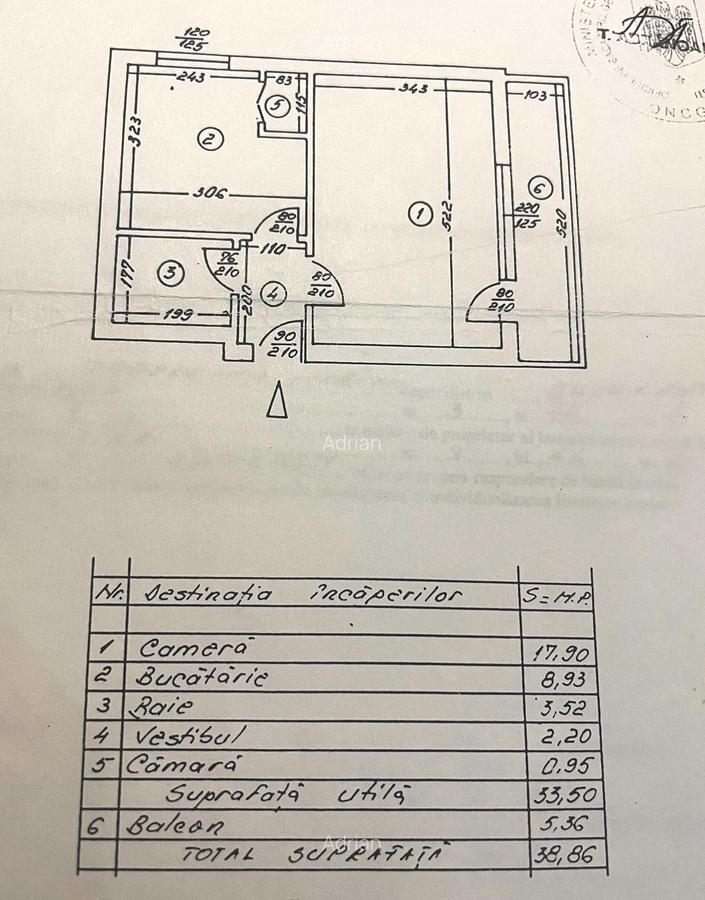 120
125
243
83
5
115
323
2
306
80
210
110
343
1
522
103
6
220
125
520
177
3
76
210
199
200
4
80
210
80
210
90
210
Adrian
Adrian
Nr. Destinația încăperilor S=M.P.
1 Cameră 17,90
2 Bucătărie 8,93
3 Baie 3,52
4 Vestibul 2,20
5 Cămară 0,95
Suprafață utilă 33,50
6 Balcon 5,36
Adrian
TOTAL SUPRAFAȚĂ 38,86